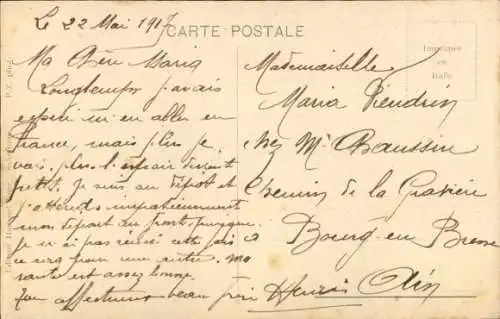 Le 22 Mai 1917
CARTE POSTALE
Ma Chère Maria
Longtemps j'avais
espéré m'en aller en
France, mais plus je
vais, plus l'espoir devient
petit. Je suis au dépôt et
j'attends impatiemment
mon départ au front puisque
je n'ai pas reussi cette fois a
ce sera pour une autre. Ma
santé est assez bonne.
Ton affectueux beau frère Henri
Mademoiselle
Maria
chez Mr Chaussin
Chemin de la Gravière
Bourg-en-Bresse
Ain
Imprimée
en
Italie